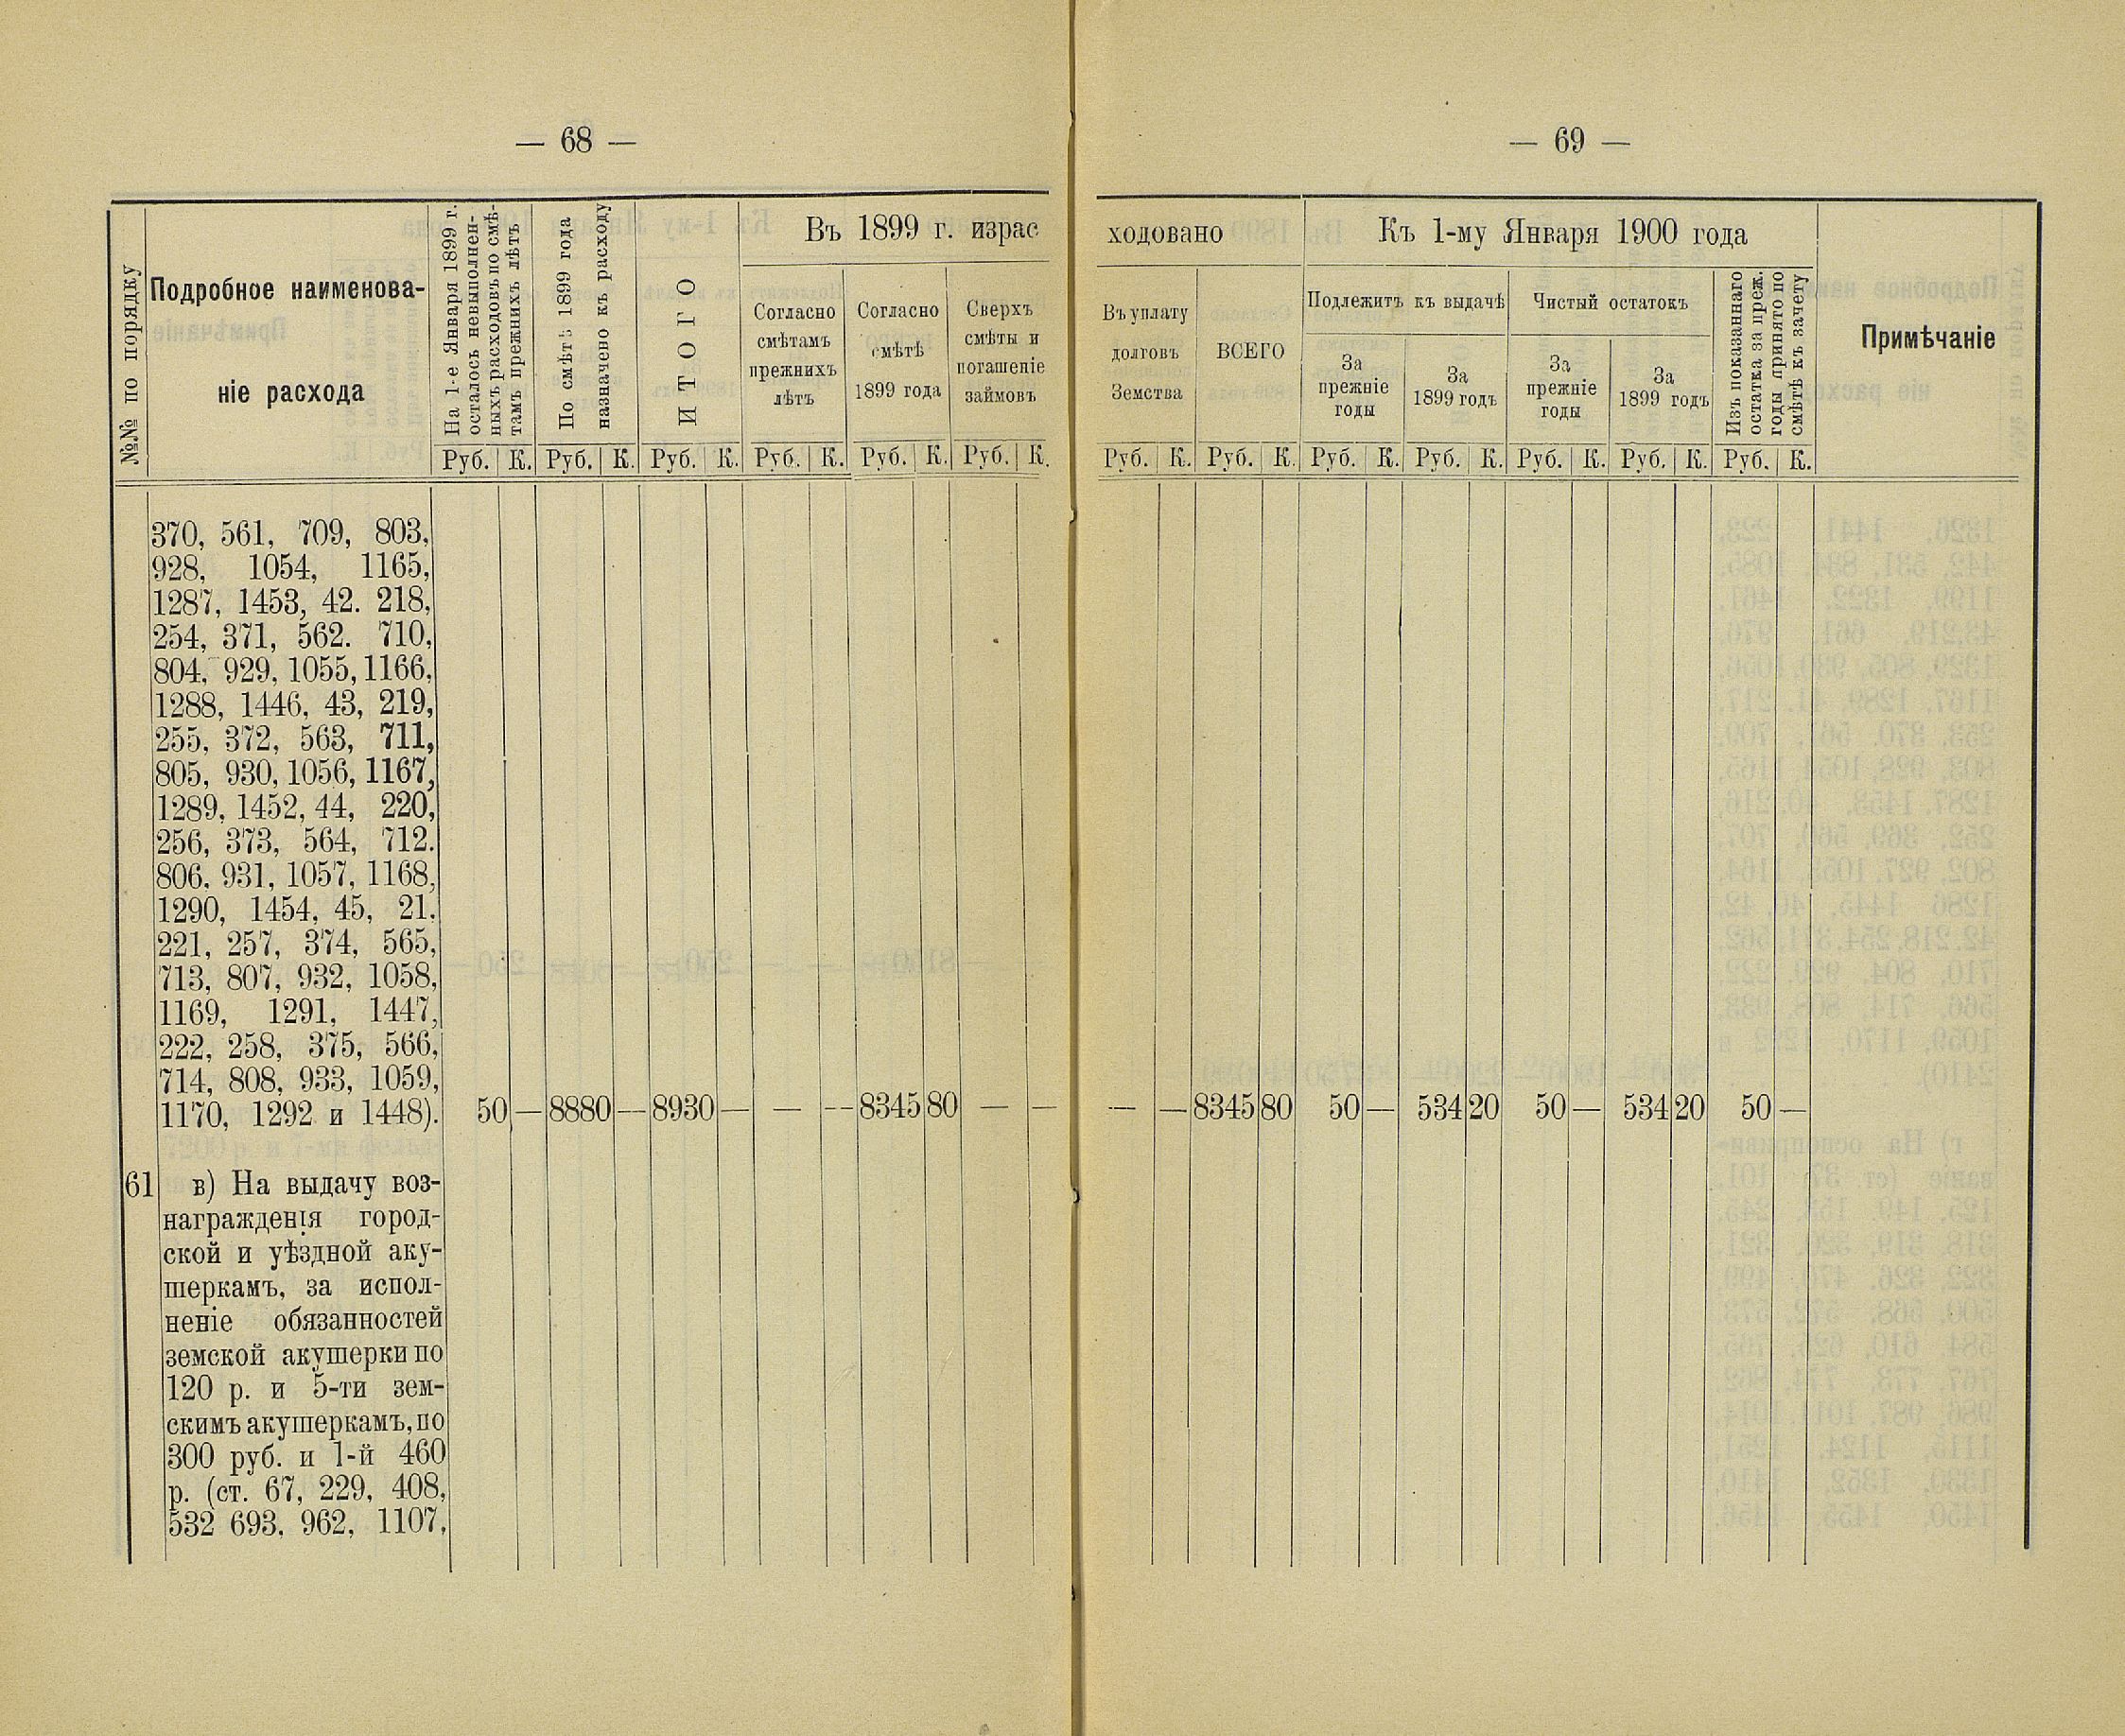 — 68 —
№№ по порядку
Подробное наименова-
ніе расхода
На 1-е Января 1899 г.
осталось невыполнен-
ныхъ расходовъ по смѣ-
тамъ прежнихъ лѣтъ
По смѣтѣ 1899 года
назначено къ расходу
ИТОГО
Въ 1899 г. израс
Согласно
смѣтамъ
прежнихъ
лѣтъ
Согласно
смѣтѣ
1899 года
Сверхъ
смѣты и
погашеніе
займовъ
Руб. К. Руб. К. Руб. К. Руб. К. Руб. К. Руб. К.
370, 561, 709, 803,
928, 1054, 1165,
1287, 1453, 42. 218,
254, 371, 562. 710,
804, 929, 1055, 1166,
1288, 1446, 43, 219,
255, 372, 563, 711,
805, 930, 1056, 1167,
1289, 1452, 44, 220,
256, 373, 564, 712.
806, 931, 1057, 1168,
1290, 1454, 45, 21,
221, 257, 374, 565,
713, 807, 932, 1058,
1169, 1291, 1447,
222, 258, 375, 566,
714, 808, 933, 1059,
1170, 1292 и 1448). 50 — 8880 — 8930 — — — 8345 80 — —
61 в) На выдачу воз-
награжденія город-
ской и уѣздной аку-
шеркамъ, за испол-
неніе обязанностей
земской акушерки по
120 р. и 5-ти зем-
скимъ акушеркамъ, по
300 руб. и 1-й 460
р. (ст. 67, 229, 408,
532 693, 962, 1107,
— 69 —
ходовано
Въ уплату
долговъ
Земства
ВСЕГО
Къ 1-му Января 1900 года
Подлежитъ къ выдачѣ
За
прежніе
годы
За
1899 годъ
Чистый остатокъ
За
прежніе
годы
За
1899 годъ
Изъ показаннаго
остатка за преж.
годы принято по
смѣтѣ къ зачету
Примѣчаніе
Руб. К. Руб. К. Руб. К. Руб. К. Руб. К. Руб. К. Руб. К.
— — 8345 80 50 — 534 20 50 — 534 20 50 —